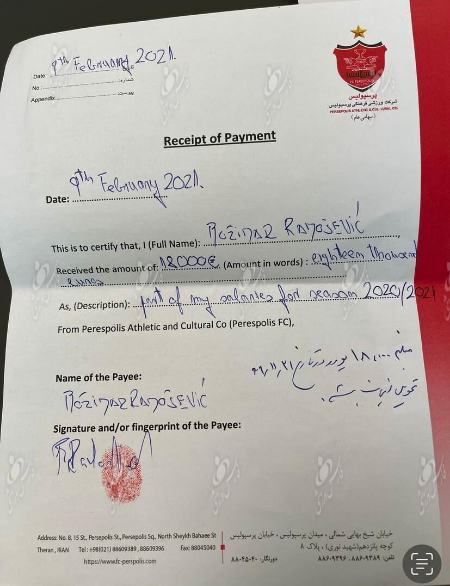 Date 9th February 2021.
No
شماره:
Appendix
پیوست:
پرسپولیس
شرکت ورزشی فرهنگی پرسپولیس
PERSEPOLIS ATHLETIC & CULTURAL CO.
(سهامی عام)
Receipt of Payment
Date: 9th February 2021.
This is to certify that, I (Full Name): BOŽIDAR RADOŠEVIĆ
Received the amount of: 18000€ (Amount in words): eighteen thousand
euros
As, (Description): part of my salaries for season 2020/2021
From Perespolis Athletic and Cultural Co (Perespolis FC),
مبلغ ۱۸۰۰۰ یورو در تاریخ ۹۹/۱۱/۲۱
شد.
Name of the Payee:
BOŽIDAR RADOŠEVIĆ
Signature and/or fingerprint of the Payee:
Address: No. 8, 15 St., Persepolis St., Persepolis Sq., North Sheykh Bahaee St
Theran, IRAN Tel: +98(021) 88609389, 88609396 Fax: 88045040
https://www.fc-perspolis.com
خیابان شیخ بهایی شمالی، میدان پرسپولیس، خیابان پرسپولیس
کوچه پانزدهم (شهید نوری)، پلاک ۸
تلفن: ۸۸۶۰۹۳۸۹، ۸۸۶۰۹۳۹۶ دورنگار: ۸۸۰۴۵۰۴۰